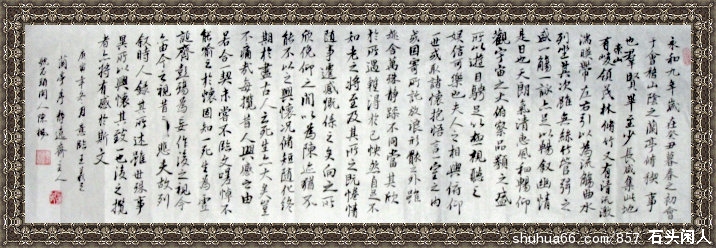 永和九年歲在癸丑暮春之初會
于會稽山陰之蘭亭脩稧事
也群賢畢至少長咸集此地
有崇山峻領茂林脩竹又有清流激
湍暎帶左右引以為流觴曲水
列坐其次雖無絲竹管弦之
盛一觴一詠亦足以暢敘幽情
是日也天朗氣清惠風和暢仰
觀宇宙之大俯察品類之盛
所以遊目騁懷足以極視聽之
娛信可樂也夫人之相與俯仰
一世或取諸懷抱悟言一室之內
或因寄所託放浪形骸之外雖
趣舍萬殊靜躁不同當其欣
於所遇暫得於己怏然自足不
知老之將至及其所之既惓情
隨事遷感慨係之矣向之所
欣俛仰之閒以為陳迹猶不
能不以之興懷況脩短隨化終
期於盡古人云死生亦大矣豈
不痛哉每攬昔人興感之由
若合一契未嘗不臨文嗟悼不
能喻之於懷固知一死生為虛
誕齊彭殤為妄作後之視今
亦由今之視昔悲夫故列
敘時人錄其所述雖世殊事
異所以興懷其致一也後之攬
者亦將有感於斯文
年冬月臨王羲之
蘭亭序於
石頭閑人陳
shuhua66.com/857 石头闲人